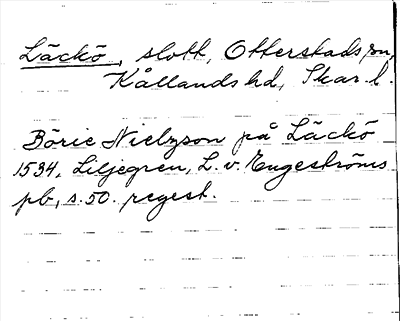 Läckö, slott, Otterstads sn,
Kållands hd, Skar. l.
Börie Nielzson på Läckö
1534, Liljegren, L. v. Engeströms
pb, s. 50. regest.